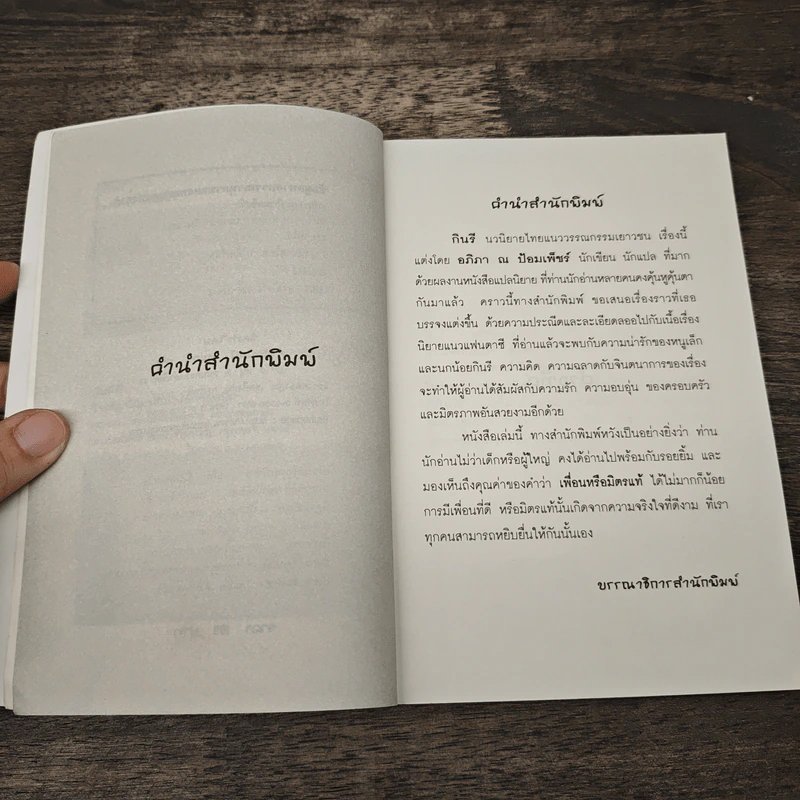 คำนำสำนักพิมพ์
คำนำสำนักพิมพ์
กินรี นวนิยายไทยแนววรรณกรรมเยาวชน เรื่องนี้
แต่งโดย อภิภา ณ ป้อมเพ็ชร์ นักเขียน นักแปล ที่มาก
ด้วยผลงานหนังสือแปลนิยาย ที่ท่านนักอ่านหลายคนคงคุ้นหูคุ้นตา
กันมาแล้ว คราวนี้ทางสำนักพิมพ์ ขอเสนอเรื่องราวที่เธอ
บรรจงแต่งขึ้น ด้วยความประณีตและละเอียดลออไปกับเนื้อเรื่อง
นิยายแนวแฟนตาซี ที่อ่านแล้วจะพบกับความน่ารักของหนูเล็ก
และนกน้อยกินรี ความคิด ความฉลาดกับจินตนาการของเรื่อง
จะทำให้ผู้อ่านได้สัมผัสกับความรัก ความอบอุ่น ของครอบครัว
และมิตรภาพอันสวยงามอีกด้วย
หนังสือเล่มนี้ ทางสำนักพิมพ์หวังเป็นอย่างยิ่งว่า ท่าน
นักอ่านไม่ว่าเด็กหรือผู้ใหญ่ คงได้อ่านไปพร้อมกับรอยยิ้ม และ
มองเห็นถึงคุณค่าของคำว่า เพื่อนหรือมิตรแท้ ได้ไม่มากก็น้อย
การมีเพื่อนที่ดี หรือมิตรแท้นั้นเกิดจากความจริงใจที่ดีงาม ที่เรา
ทุกคนสามารถหยิบยื่นให้กันนั้นเอง
บรรณาธิการสำนักพิมพ์